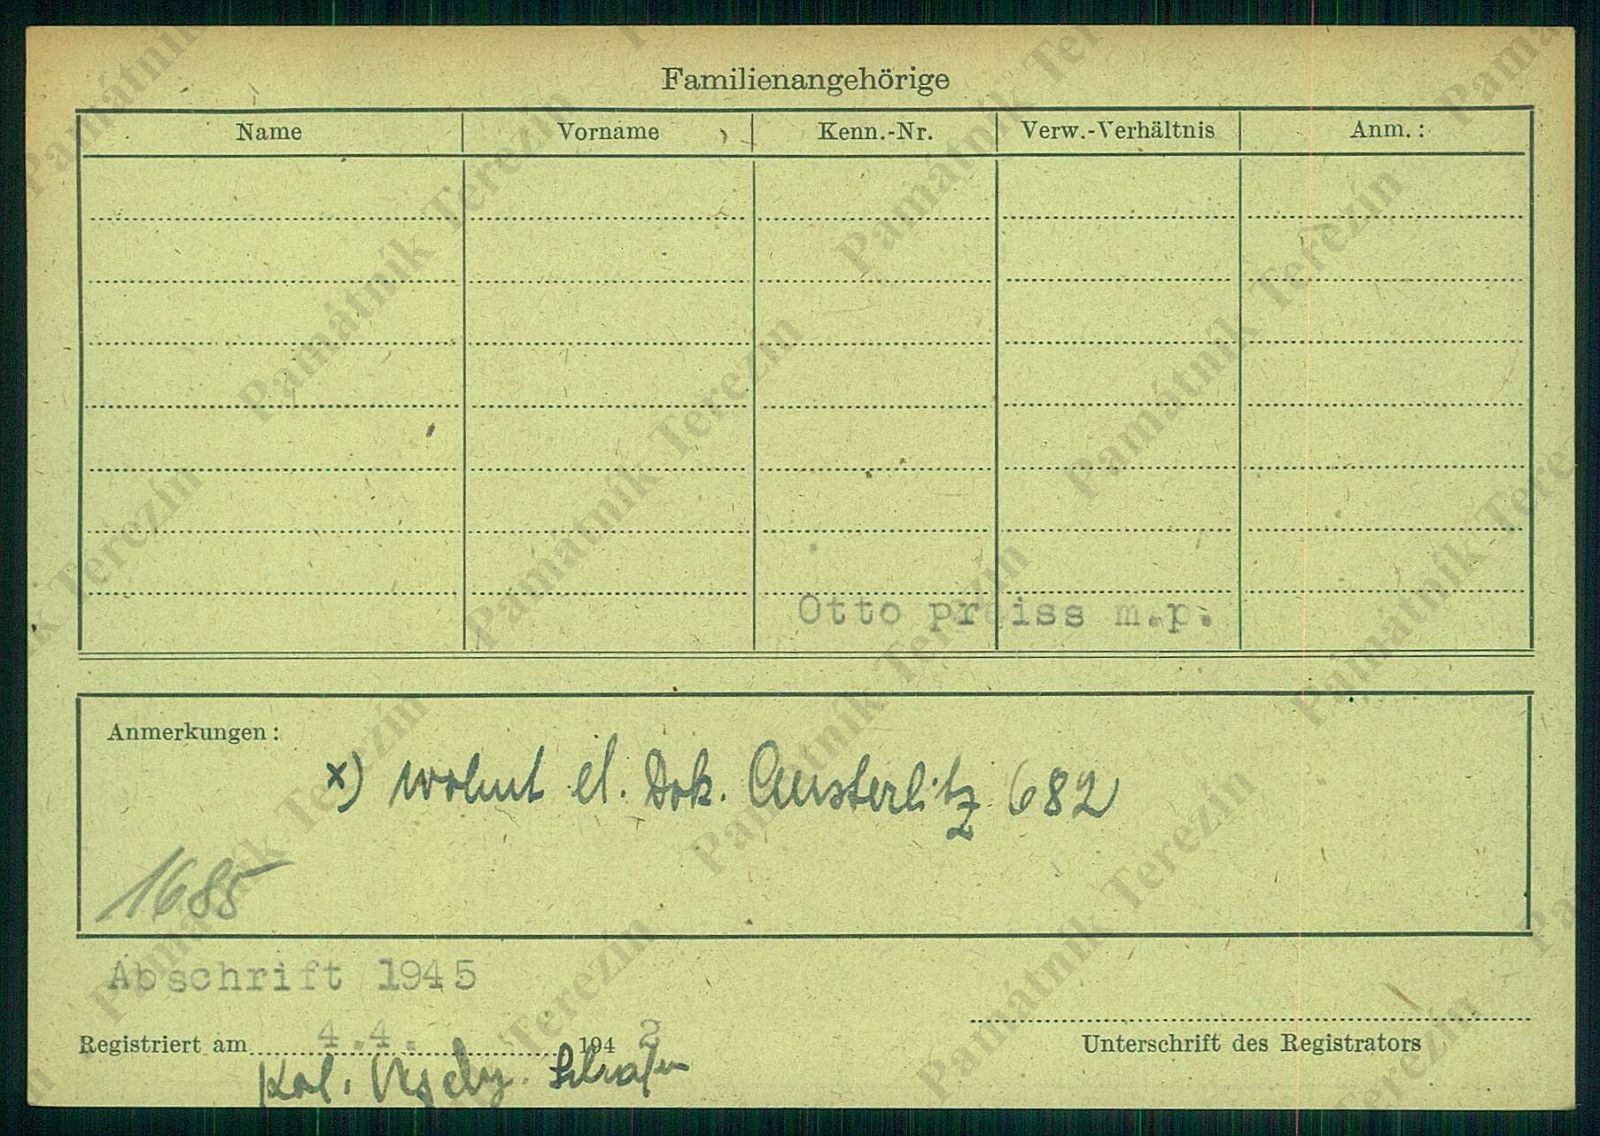 Familienangehörige
Name Vorname Kenn.-Nr. Verw.-Verhältnis Anm. :
Otto preiss m.p.
Anmerkungen :
x) wohnt el. Dok. Austerlitz 682
1685
Abschrift 1945
Registriert am 4.4. 194 2
Unterschrift des Registrators
Kol.
Památník Terezín